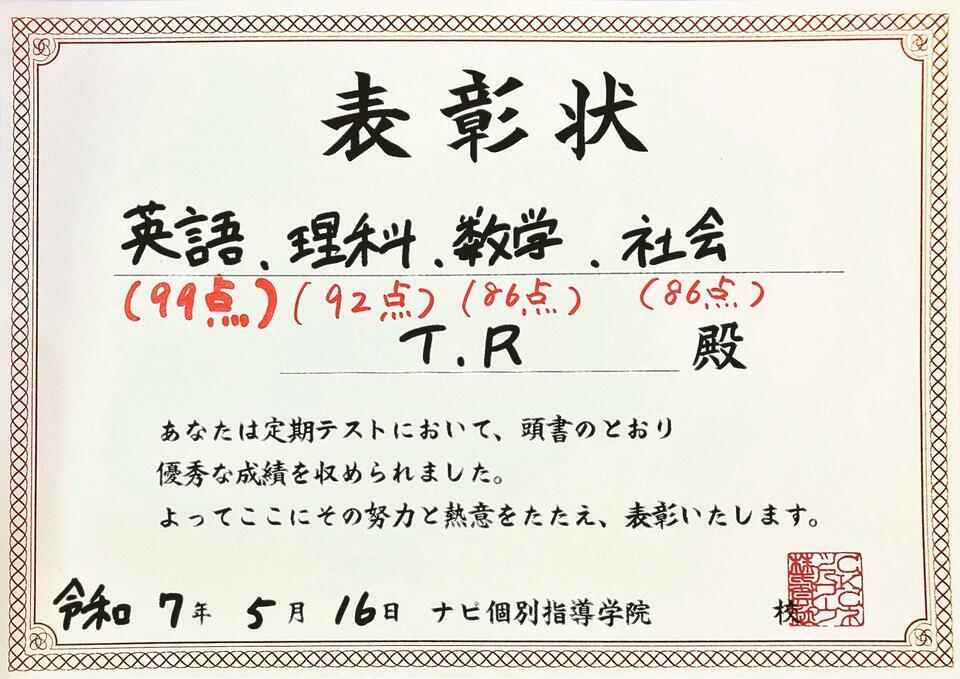 表彰状
英語.理科.数学.社会
(99点)(92点)(86点)(86点)
T.R 殿
あなたは定期テストにおいて、頭書のとおり
優秀な成績を収められました。
よってここにその努力と熱意をたたえ、表彰いたします。
令和7年5月16日 ナビ個別指導学院 校